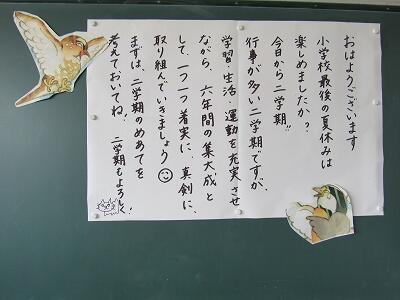 おはようございます
小学校最後の夏休みは
楽しめましたか?
今日から二学期!!
行事が多い二学期ですが、
学習・生活・運動を充実させ
ながら、六年間の集大成と
して、一つ一つ着実に、真剣に、
取り組んでいきましょう
まずは、二学期のめあてを
考えておいてね! 二学期もよろしく!